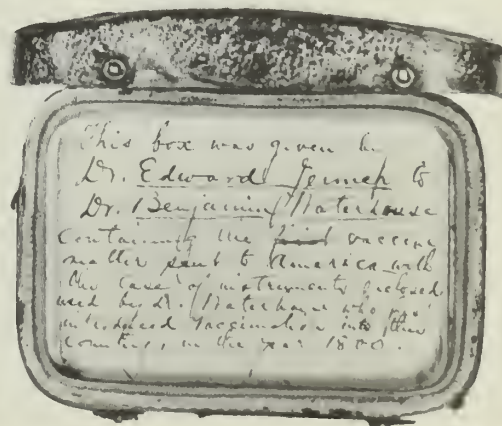 This box was given by
Dr. Edward Jenner to
Dr. Benjamin Waterhouse
containing the first vaccine
matter sent to America with
the case of instruments enclosed
used by Dr. Waterhouse who
introduced vaccination into this
country, in the year 1800.